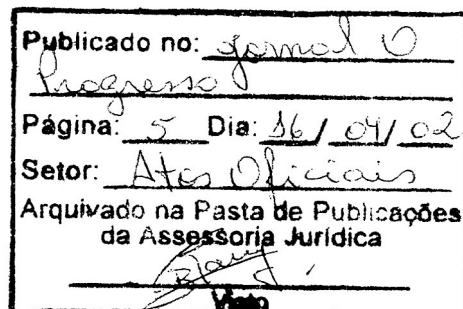 Publicado no: Jornal O
Progresso
Página: 5 Dia: 16/04/02
Setor: Atos Oficiais
Arquivado na Pasta de Publicações
da Assessoria Jurídica
Visto